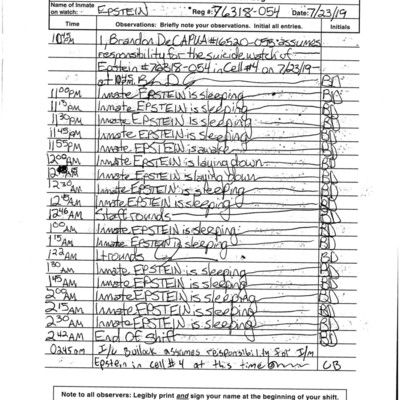 Name of Inmate
on watch: EPSTEIN Reg #: 76318-054 Date: 7/23/19
Time Observations: Briefly note your observations. Initial all entries. Initials
10:45 PM I, Brandon DeCAPUA #16520-055 assumes
responsibility for the suicide watch of
Epstein #76318-054 in Cell #4 on 7/23/19
at BD
11:00PM Inmate EPSTEIN is sleeping BD
11:15PM Inmate EPSTEIN is sleeping BD
11:30PM Inmate EPSTEIN is sleeping BD
11:45PM Inmate EPSTEIN is sleeping BD
11:55PM Inmate EPSTEIN is awake BD
12:00AM Inmate EPSTEIN is laying down BD
AM Inmate EPSTEIN is laying down BD
12:30AM Inmate EPSTEIN is sleeping BD
12:45AM Inmate EPSTEIN is sleeping BD
12:46AM Staff rounds BD
1:00AM Inmate EPSTEIN is sleeping BD
1:15AM Inmate EPSTEIN is sleeping BD
1:22AM Lt rounds BD
1:30AM Inmate EPSTEIN is sleeping BD
1:45AM Inmate EPSTEIN is sleeping BD
2:00AM Inmate EPSTEIN is sleeping BD
2:15AM Inmate EPSTEIN is sleeping BD
2:30AM Inmate EPSTEIN is sleeping BD
2:42AM End Of Shift BD
0245am I/c Bullock assumes responsibility for I/m
Epstein in cell #4 at this time CB
Note to all observers: Legibly print and sign your name at the beginning of your shift.